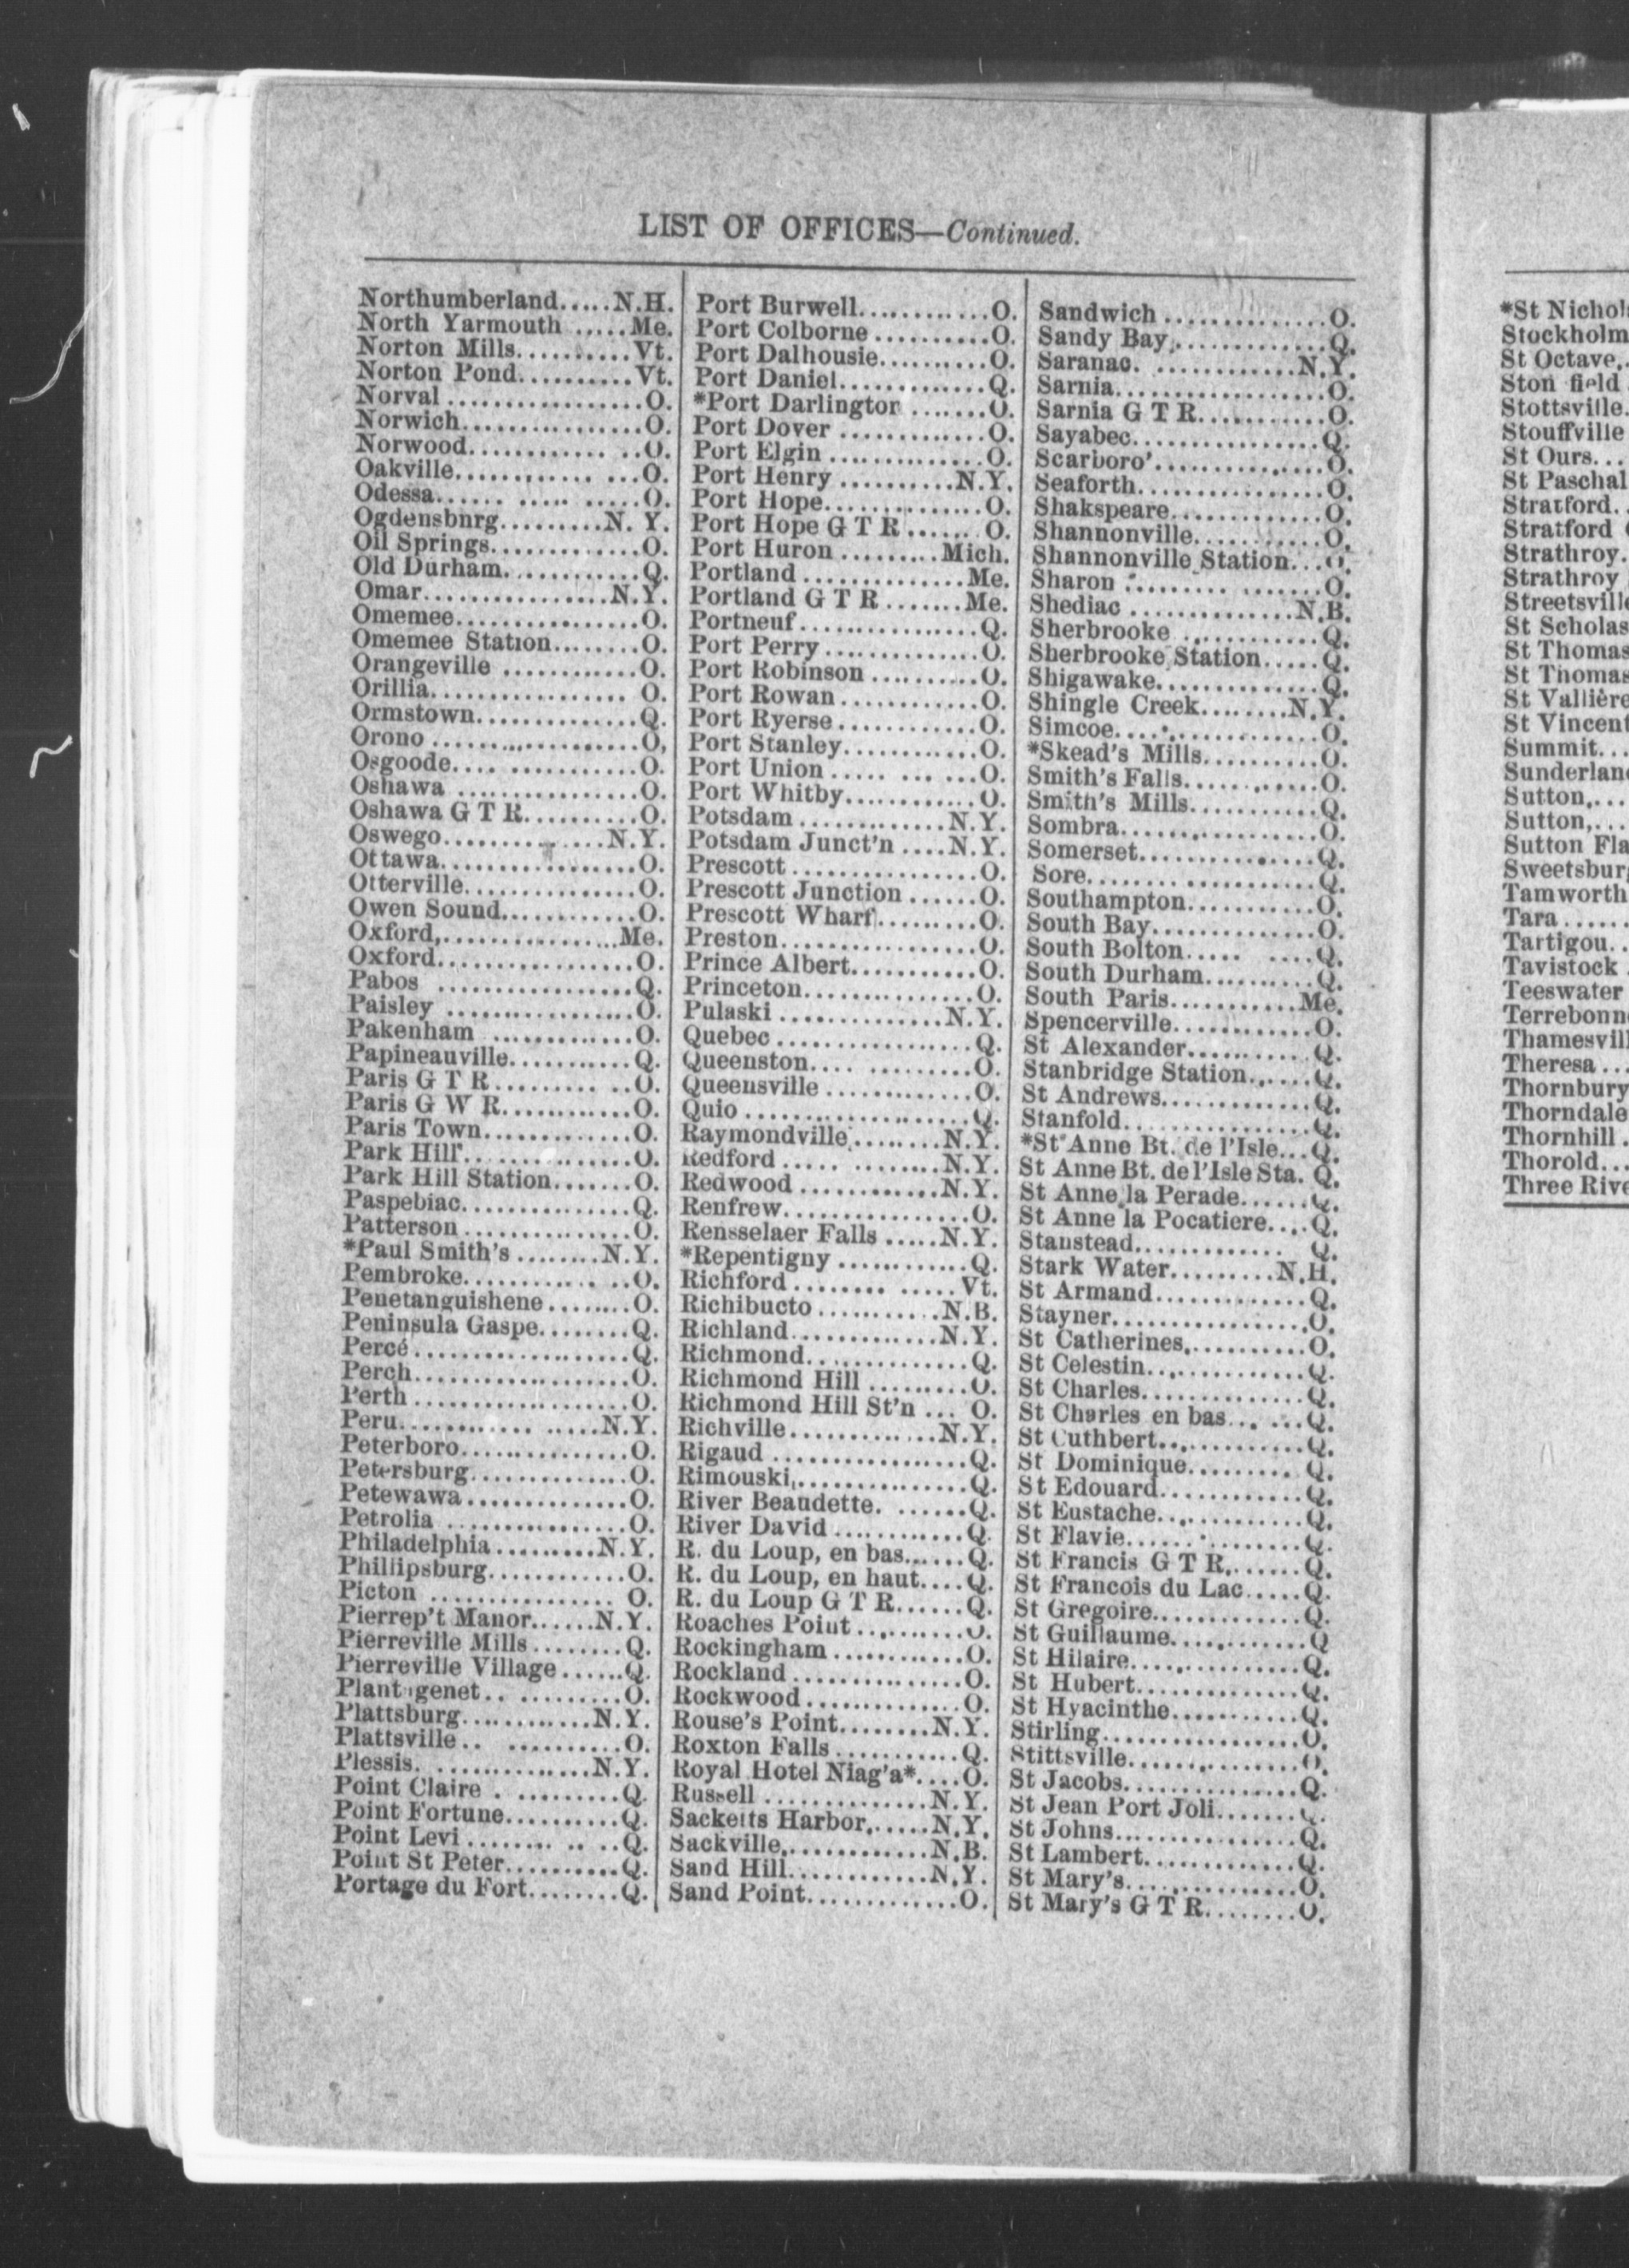 LIST OF OFFICES—Continued.
Northumberland.....N.H.
North Yarmouth .....Me.
Norton Mills..........Vt.
Norton Pond..........Vt.
Norval .................O.
Norwich................O.
Norwood............ ..O.
Oakville............ ...O.
Odessa...... ..... .....O.
Ogdensbnrg.........N. Y.
Oil Springs.............O.
Old Durham............Q.
Omar.................N.Y.
Omemee................O.
Omemee Station........O.
Orangeville ............O.
Orillia................. O.
Ormstown..............Q.
Orono ...................O,
Osgoode.... ............O.
Oshawa ................O.
Oshawa G T R..........O.
Oswego..............N.Y.
Ottawa..................O.
Otterville...............O.
Owen Sound............O.
Oxford,................Me.
Oxford..................O.
Pabos .................Q.
Paisley .................O.
Pakenham .............O.
Papineauville...........Q.
Paris G T R......... ..O.
Paris G W R............O.
Paris Town.............O.
Park Hill...............O.
Park Hill Station.......O.
Paspebiac...............Q.
Patterson ...............O.
*Paul Smith's ........N.Y.
Pembroke............ ..O.
Penetanguishene........O.
Peninsula Gaspe........Q.
Percé...................Q.
Perch...................O.
Perth ...................O.
Peru............ .....N.Y.
Peterboro...............O.
Petersburg..............O.
Petewawa...............O.
Petrolia ................O.
Philadelphia.........N.Y.
Phillipsburg............O.
Picton ................ O.
Pierrep't Manor......N.Y.
Pierreville Mills........Q.
Pierreville Village......Q.
Plant genet.. .........O.
Plattsburg............N.Y.
Plattsville.. ..........O.
Plessis. ..............N.Y.
Point Claire . .........Q.
Point Fortune..........Q.
Point Levi ........ .. ..Q.
Point St Peter..........Q.
Portage du Fort........Q.
Port Burwell............O.
Port Colborne ..........O.
Port Dalhousie..........O.
Port Daniel.............Q.
*Port Darlington .......O.
Port Dover .............O.
Port Elgin ..............O.
Port Henry ..........N.Y.
Port Hope...............O.
Port Hope G T R....... O.
Port Huron .........Mich.
Portland ..............Me.
Portland G T R.......Me.
Portneuf................Q.
Port Perry ..............O.
Port Robinson ..........O.
Port Rowan.............O.
Port Ryerse.............O.
Port Stanley............O.
Port Union ..... ... ...O.
Port Whitby............O.
Potsdam .............N.Y.
Potsdam Junct'n ....N.Y.
Prescott .................O.
Prescott Junction ......O.
Prescott Wharf.........O.
Preston..................O.
Prince Albert...........O.
Princeton...............O.
Pulaski ..............N.Y.
Quebec .................Q.
Queenston.... .........O.
Queensville .............O.
Quio ....................Q.
Raymondville........N.Y.
Redford ..... ........N.Y.
Redwood ............N.Y.
Renfrew................O.
Rensselaer Falls .....N.Y.
*Repentigny ............Q.
Richford ........ .....Vt.
Richibucto ...........N.B.
Richland.............N.Y.
Richmond...............Q.
Richmond Hill .........O.
Richmond Hill St'n ... O.
Richville.............N.Y.
Rigaud .................Q.
Rimouski,...............Q.
River Beaudette. ......Q.
River David ............Q.
R. du Loup, en bas......Q.
R. du Loup, en haut....Q.
R. du Loup G T R......Q.
Roaches Point ..........O.
Rockingham ............O.
Rockland ...............O.
Rockwood..............O.
Rouse's Point........N.Y.
Roxton Falls ...........Q.
Royal Hotel Niag'a*....O.
Russell ...............N.Y.
Sacketts Harbor,.....N.Y.
Sackville,............N.B.
Sand Hill............N.Y.
Sand Point.............O.
Sandwich ...............O.
Sandy Bay..............Q.
Saranac. ............N.Y.
Sarnia...................O.
Sarnia G T R............O.
Sayabec.................Q.
Scarboro'...............O.
Seaforth.................O.
Shakspeare..............O.
Shannonville............O.
Shannonville Station...O.
Sharon ......... .......O.
Shediac ..............N.B.
Sherbrooke .............Q.
Sherbrooke Station.....Q.
Shigawake...............Q.
Shingle Creek........N.Y.
Simcoe..................O.
*Skead's Mills..........O.
Smith's Falls............O.
Smith's Mills............Q.
Sombra..................O.
Somerset................Q.
Sore.....................Q.
Southampton............O.
South Bay...............O.
South Bolton..... ....Q.
South Durham..........Q.
South Paris...........Me.
Spencerville............O.
St Alexander...........Q.
Stanbridge Station......Q.
St Andrews.............Q.
Stanfold................Q.
*St Anne Bt. de l'Isle...Q.
St Anne Bt. de l'Isle Sta. Q.
St Anne la Perade......Q.
St Anne la Pocatiere....Q.
Stanstead............. Q.
Stark Water.........N.H.
St Armand..............Q.
Stayner.................O.
St Catherines...........O.
St Celestin..............Q.
St Charles..............Q.
St Charles en bas... ...Q.
St Cuthbert.............Q.
St Dominique......... Q.
St Edouard.............Q.
St Eustache.............Q.
St Flavie................Q.
St Francis G T R.......Q.
St Francois du Lac.....Q.
St Gregoire.............Q.
St Guillaume............Q
St Hilaire................Q.
St Hubert...............Q.
St Hyacinthe............Q.
Stirling..................O.
Stittsville................O.
St Jacobs................Q.
St Jean Port Joli.......Q.
St Johns................Q.
St Lambert.............Q.
St Mary's................O.
St Mary's G T R........O.
*St Nichol
Stockholm
St Octave,.
Ston field
Stottsville.
Stouffville
St Ours...
St Paschal
Stratford..
Stratford
Strathroy.
Strathroy
Streetsville
St Scholas
St Thomas
St Thomas
St Vallière
St Vincent
Summit...
Sunderlan
Sutton,...
Sutton,...
Sutton Fla
Sweetsbur
Tamworth
Tara ......
Tartigou..
Tavistock .
Teeswater
Terrebonn
Thamesvil
Theresa ...
Thornbury
Thorndale
Thornhill .
Thorold...
Three Rive